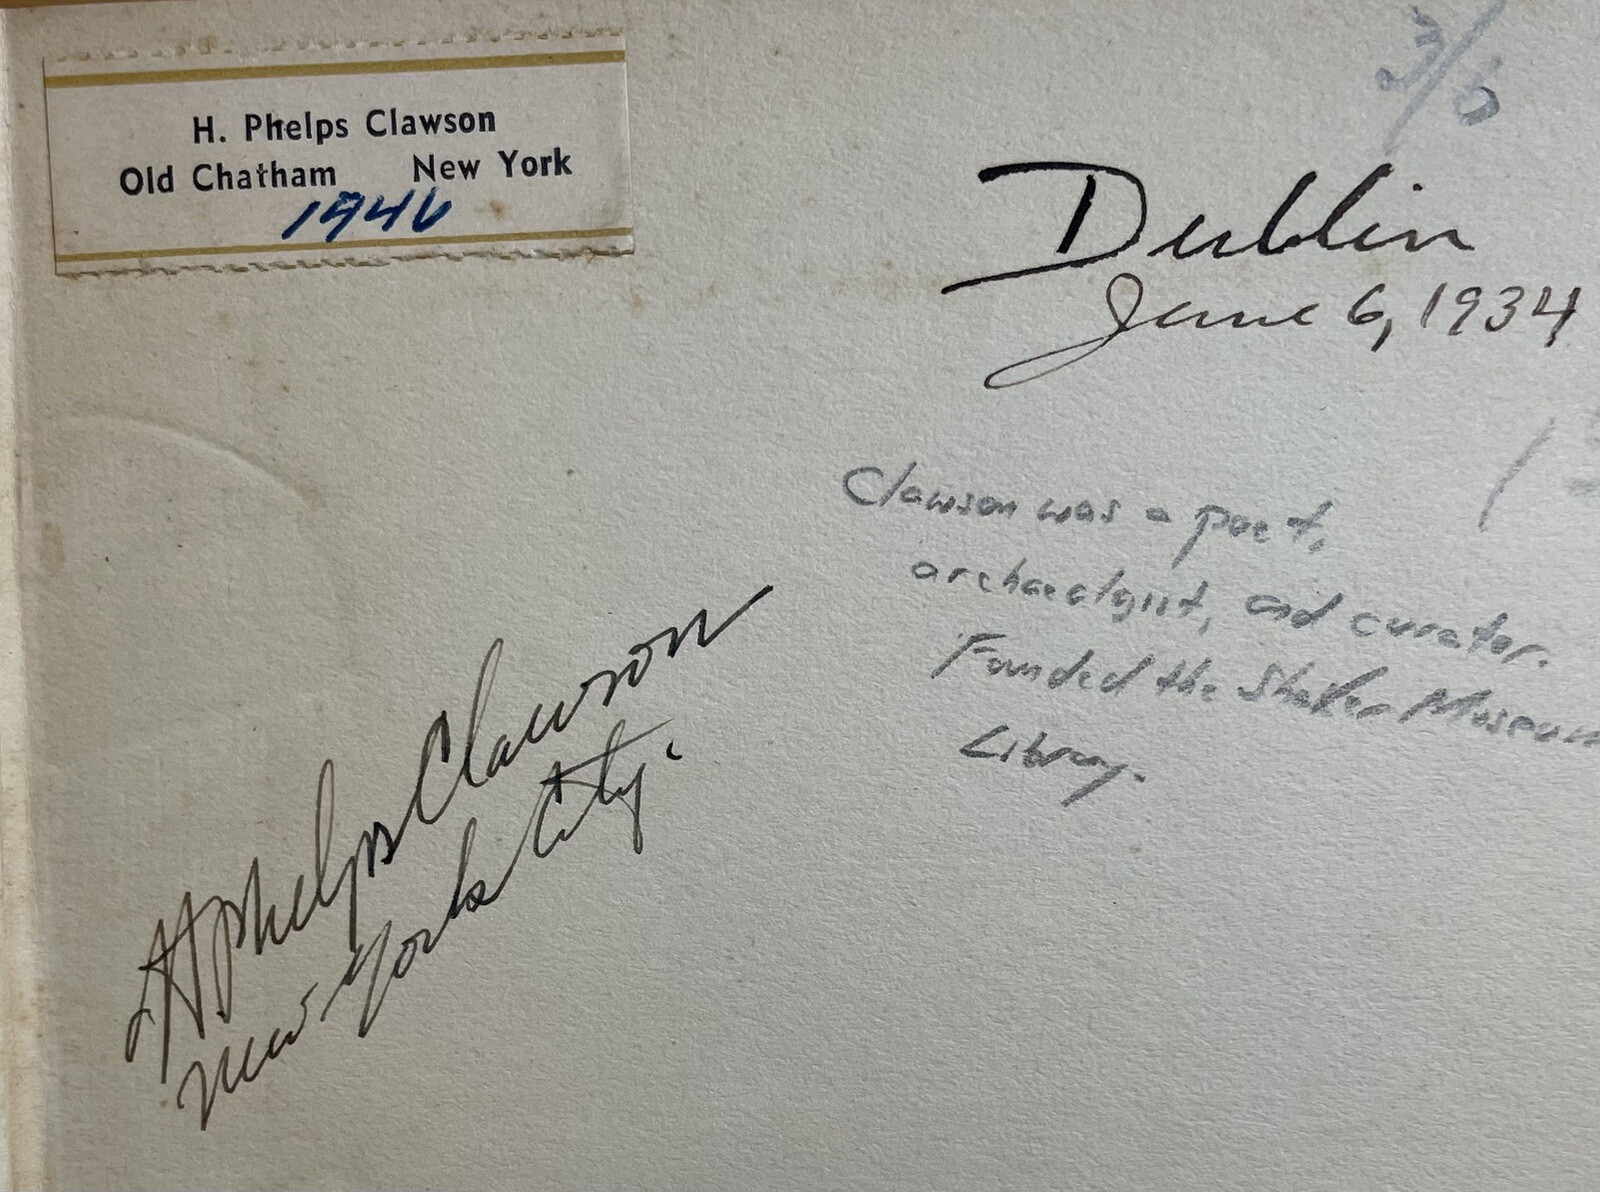 H. Phelps Clawson
Old Chatham New York
1946
3/6
Dublin
June 6, 1934
Clawson was a poet,
archaeologist, and curator.
Founded the Shaker Museum
Library.
H Phelps Clawson
New York City.